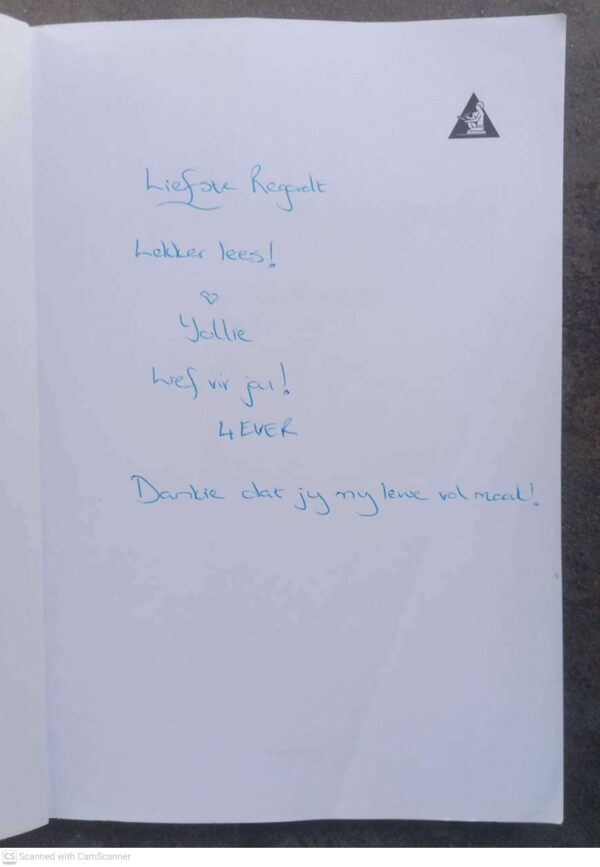 Liefste Regardt
Lekker lees!
♡
Yollie
Lief vir jou!
4 EVER
Dankie dat jy my lewe vol maak!
CS Scanned with CamScanner